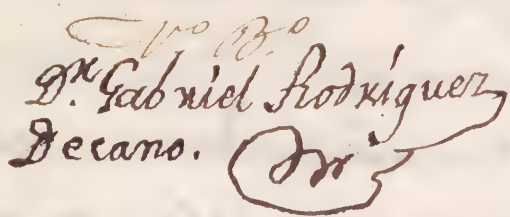 Vº Bº
Dr. Gabriel Rodríguez
Decano.